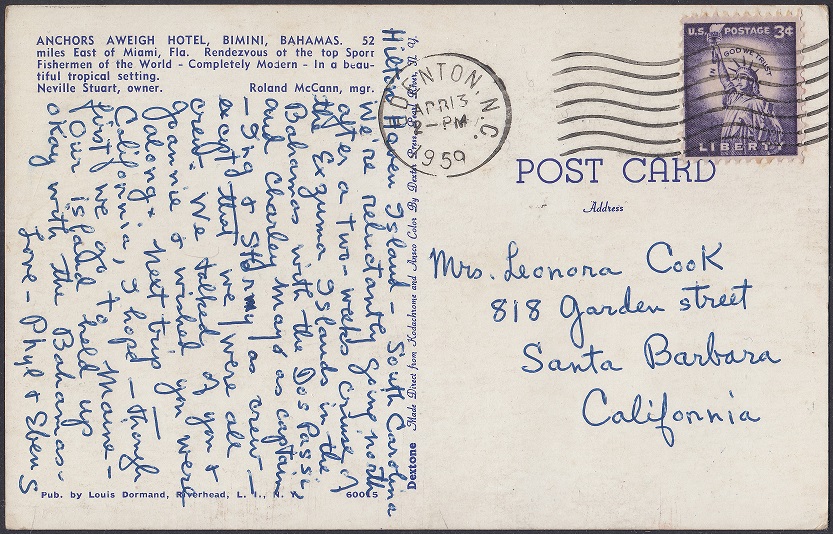 ANCHORS AWEIGH HOTEL, BIMINI, BAHAMAS. 52
miles East of Miami, Fla. Rendezvous of the top Sport
Fishermen of the World - Completely Modern - In a beau-
tiful tropical setting.
Neville Stuart, owner. Roland McCann, mgr.
Hilton Haven Island - South Carolina
We're reluctantly going north
after a two-weeks cruise of
the Exzuma Islands in the
Bahamas with the Dos Passi
and Charley Mayo as captain
- Jing & Stormy as crew -
except that we were all
crew. We talked of you &
Joannie & wished you were
along. Next trip -
California, I hope - though
first we go to Maine -
Our island held up
okay with the Bahamas -
Love - Phyl & Eben S
Pub. by Louis Dormand, Riverhead, L. I., N. Y. 60015
Dextone Made Direct from Kodachrome and Ansco Color By Dexter Press, Pearl River, N. Y.
DENTON, N.C.
APR 13
PM
1959
U.S. POSTAGE 3¢
IN GOD WE TRUST
LIBERTY
POST CARD
Address
Mrs. Leonora Cook
818 Garden street
Santa Barbara
California